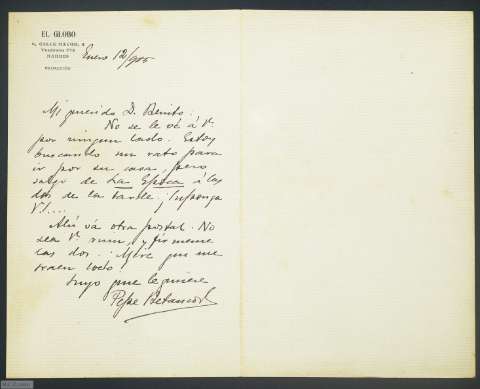 EL GLOBO
4, CALLE MAYOR, 4
MADRID
REDACCIÓN
Enero 12/905
Mi querido D. Benito:
No se le vé á Vd.
por ningun lado. Estoy
buscando un rato para
ir por su casa, pero
salgo de La Epoca á las
dos de la tarde; ¡Suponga
V!....
Ahí vá otra postal. No
sea Vd. ruin, y firmeme
las dos. ¡Mire que me
traen loco!
Suyo que le quiere
Pepe Betancort